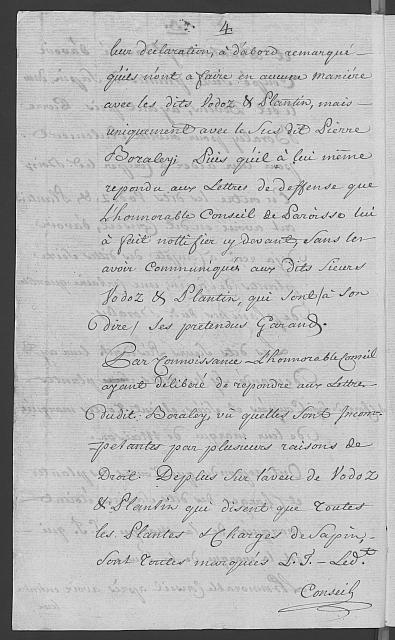 4
leur déclaration, a d'abord remarqué
qu'ils n'ont a faire en aucune maniére
avec les dits Vodoz & Plantin, mais
uniquement avec le Sus dit Pierre
Boraley; Puis qu'il à lui même
repondu aux Lettres de deffense que
L'honnorable Conseil de Paroisse lui
à fait nottifier cy devant, Sans les
avoir communiqué aux dits Sieurs
Vodoz & Plantin, qui sont / à Son
Dire / Ses pretendus Garands.
Par Connoissance L'honnorable Conseil
ayant délibéré de repondre aux Lettres
Dudit Boraley, vû quelles Sont Incom=
=petantes par plusieurs raisons de
Droit. Deplus Sur laveu de Vodoz
& Plantin qui disent que Toutes
les Plantes & Charges de Sapin,
Sont Toutes marqués L. J. - Ledt
Conseil